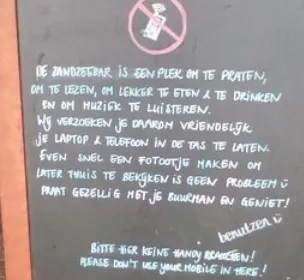 DE ZANDZEEBAR IS EEN PLEK OM TE PRATEN,
OM TE LEZEN, OM LEKKER TE ETEN & TE DRINKEN
EN OM MUZIEK TE LUISTEREN.
WIJ VERZOEKEN JE DAAROM VRIENDELIJK
JE LAPTOP & TELEFOON IN DE TAS TE LATEN.
EVEN SNEL EEN FOTOOTJE MAKEN OM
LATER THUIS TE BEKIJKEN IS GEEN PROBLEEM
PRAAT GEZELLIG MET JE BUURMAN EN GENIET!
benutzen
BITTE HIER KEINE HANDY
PLEASE DON'T USE YOUR MOBILE IN HERE!